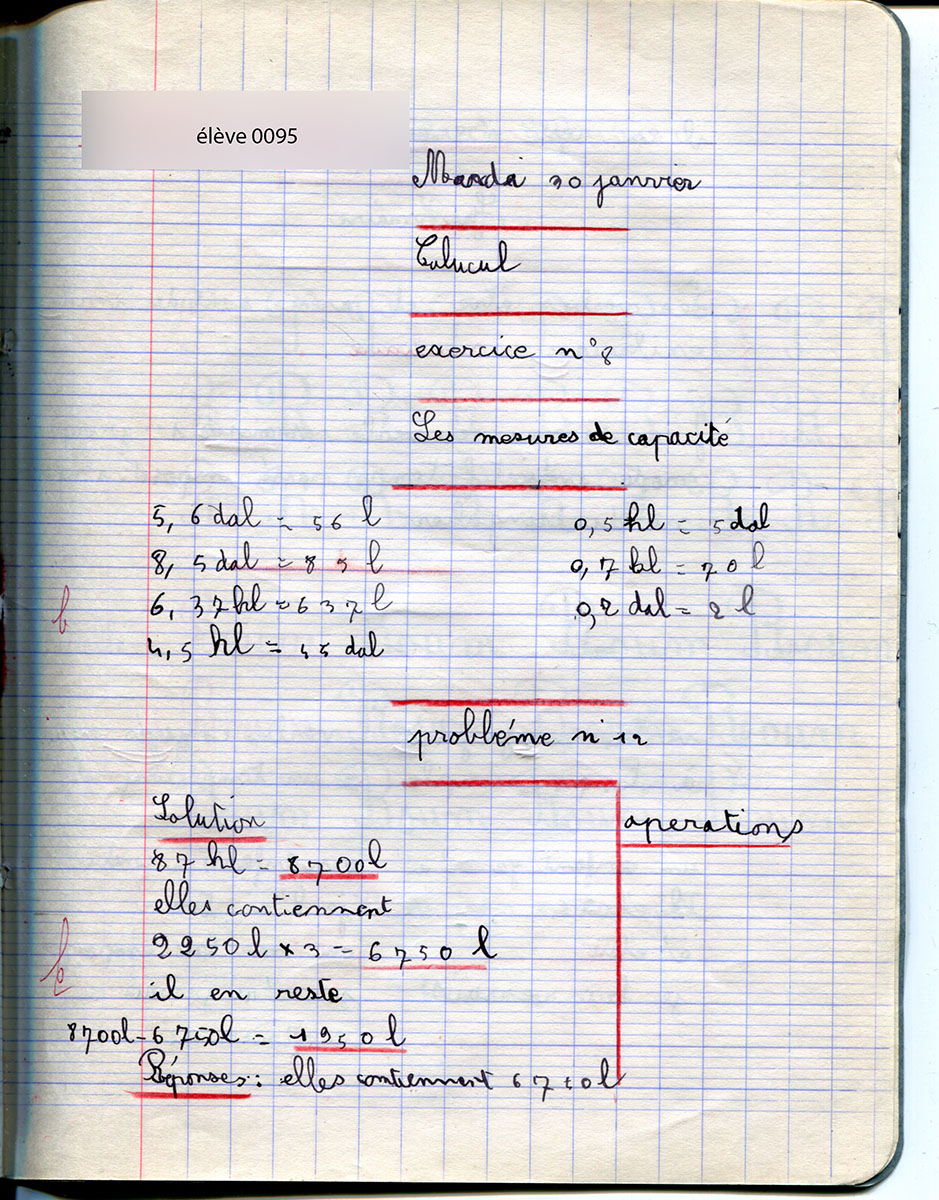 élève 0095
Mardi 20 janvier
Calucul
exercice n°8
Les mesures de capacité
5,6 dal = 56 l
8,5 dal = 85 l
6,37 hl = 637 l
4,5 hl = 45 dal
0,5 hl = 5 dal
0,7 hl = 70 l
0,2 dal = 2 l
b
probléme n° 12
Solution
87 hl = 8700 l
elles contiennent
2250 l × 3 = 6750 l
il en reste
8700l - 6750l = 1950 l
Réponses : elles contiennent 6750l
operations
b